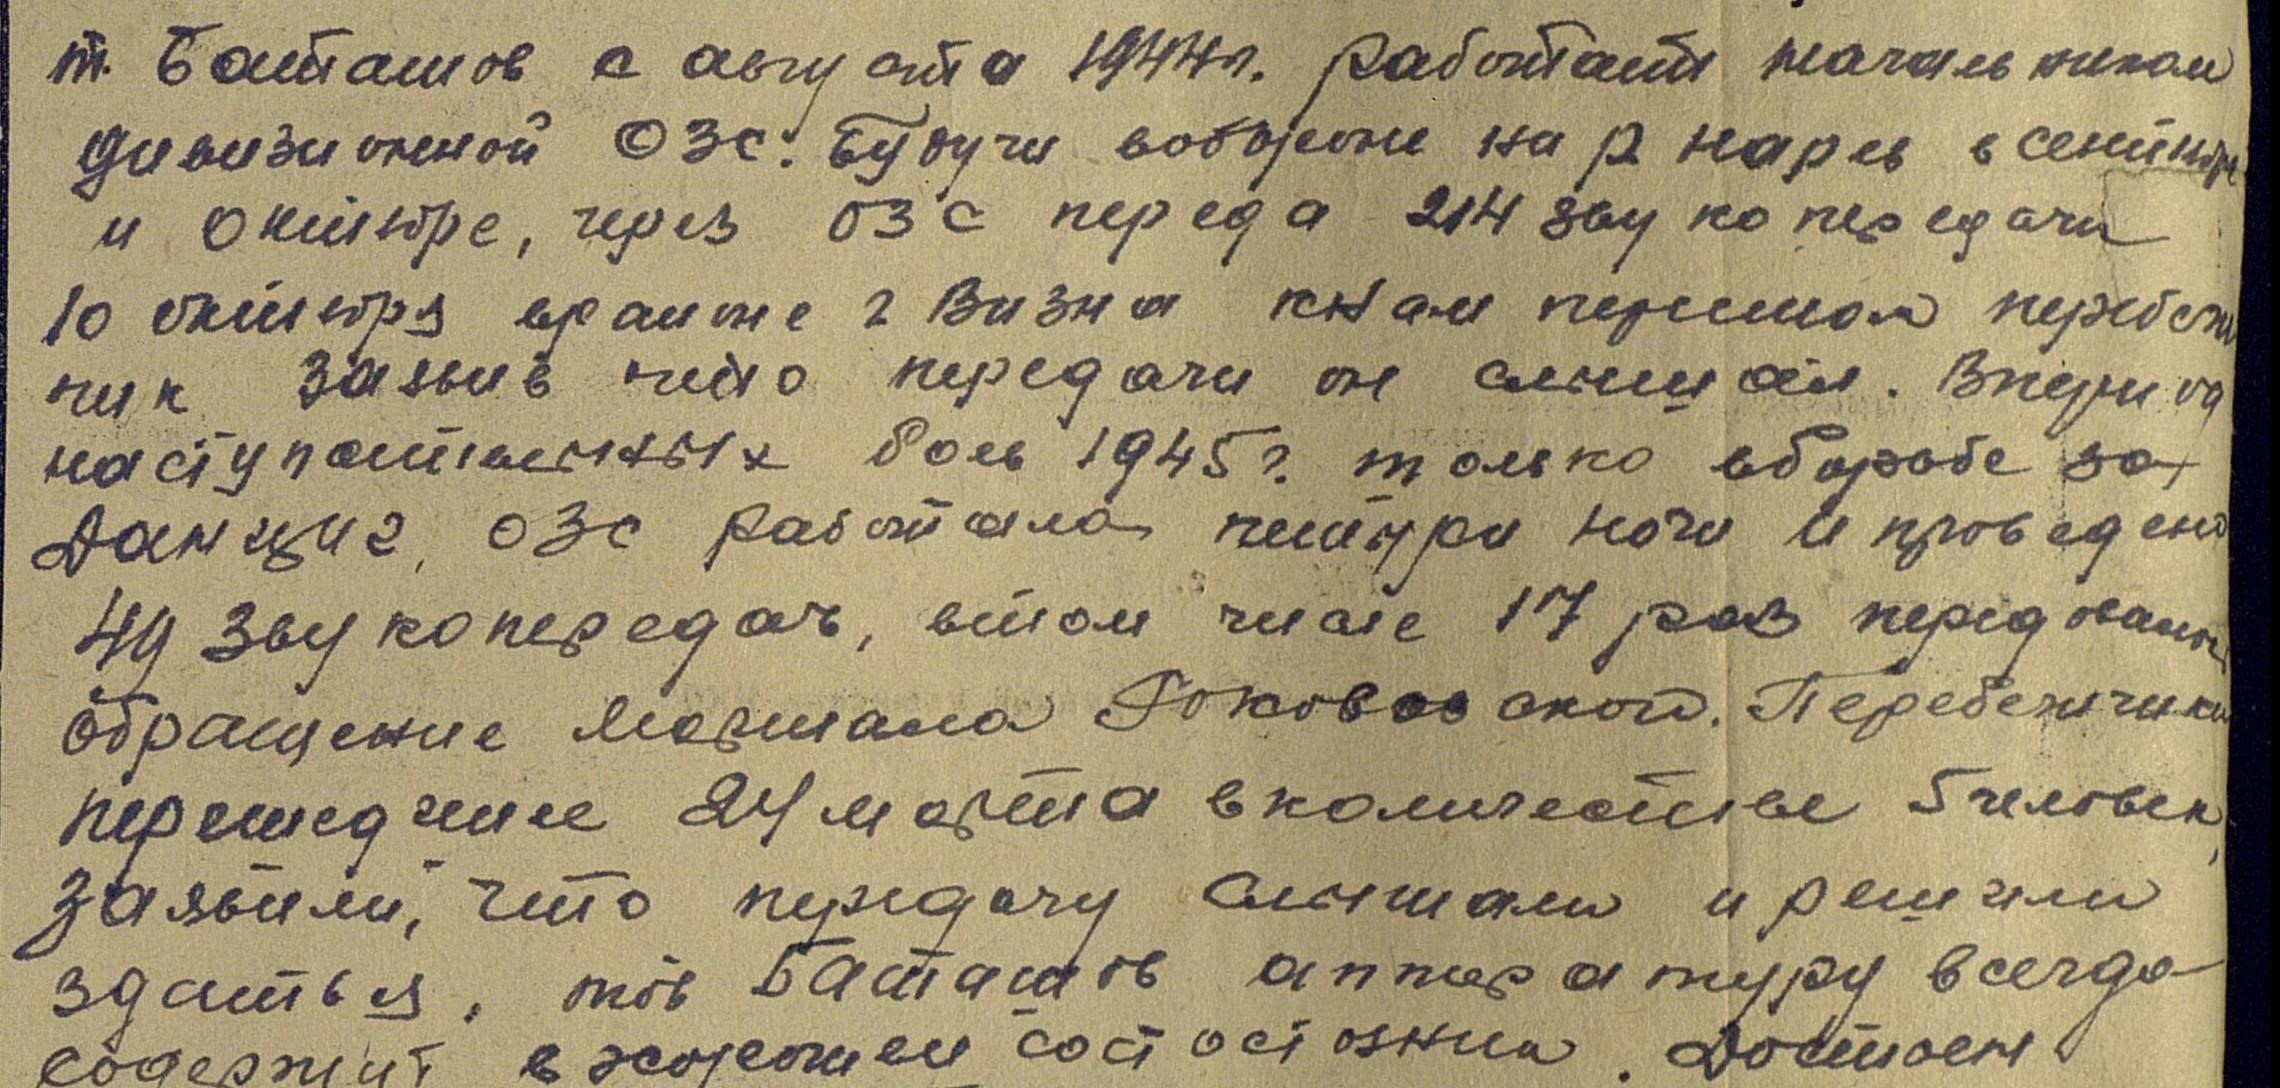 т. Баташов с августа 1944г. работает начальником
дивизионной ОЗС. Будучи вобороне на р. Нарев в сентябре
и октябре, через ОЗС переда 214 звукопередачи
10 октября врайоне г Визна кнам перешол перебеж
чик заявив что передачи он слышал. Впериод
наступательных боев 1945г. только вборьбе за
Данциг, ОЗС работала четыри ночи и проведено
49 звукопередач, втом числе 17 раз передавалось
обращение Маршала Рокоссовской. Перебежчики
перешедшие 24 марта вколичестве 5 человек,
заявили, что передачу слышали и решили
здаться. тов Баташов аппаратуру всегда
содержит в хорошем состоянии. Достоен